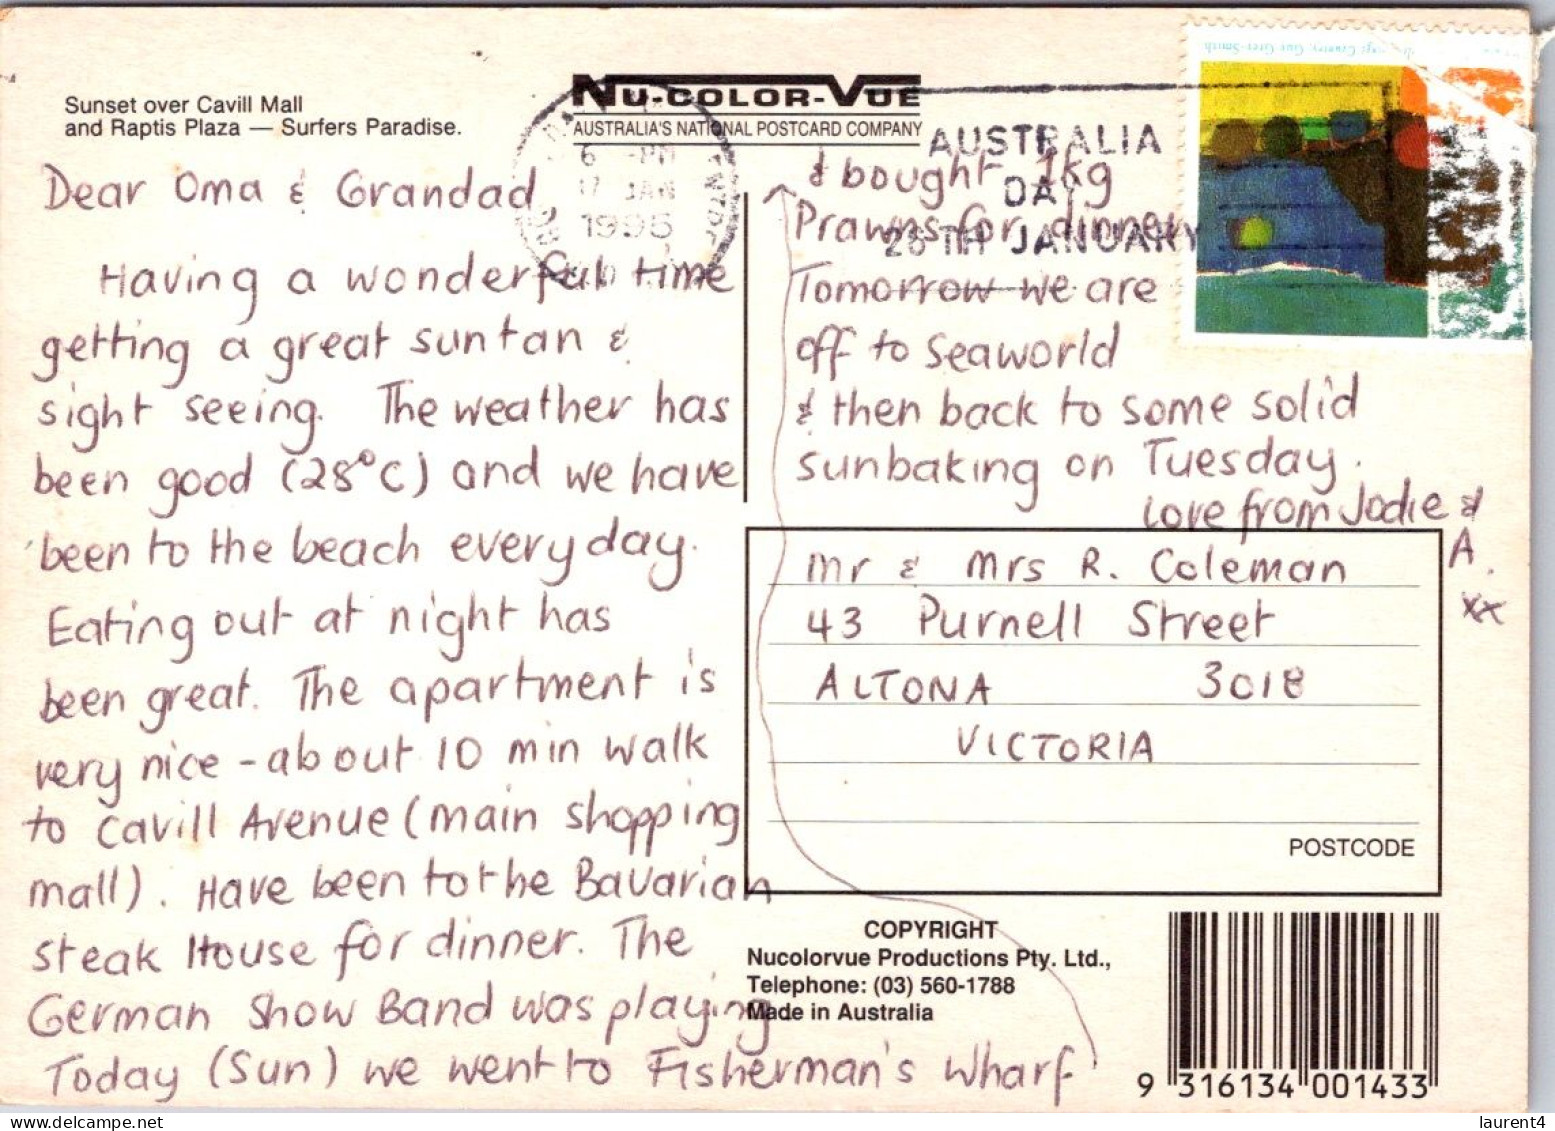 Sunset over Cavill Mall
and Raptis Plaza — Surfers Paradise.
NU-COLOR-VUE
AUSTRALIA'S NATIONAL POSTCARD COMPANY
6 -PM
17 JAN
1995
AUSTRALIA
DAY
26TH JANUARY
Dear Oma & Grandad
Having a wonderful time
getting a great suntan &
sight seeing. The weather has
been good (28°C) and we have
been to the beach everyday.
Eating out at night has
been great. The apartment is
very nice - about 10 min walk
to Cavill Avenue (main shopping
mall). Have been to the Bavarian
steak House for dinner. The
German Show Band was playing
Today (Sun) we went to Fisherman's Wharf
& bought 1kg
Prawns for dinner
Tomorrow we are
off to Seaworld
& then back to some solid
sunbaking on Tuesday.
Love from Jodie &
A.
xx
Mr & Mrs R. Coleman
43 Purnell Street
ALTONA 3018
VICTORIA
POSTCODE
COPYRIGHT
Nucolorvue Productions Pty. Ltd.,
Telephone: (03) 560-1788
Made in Australia
9 316134 001433
laurent4